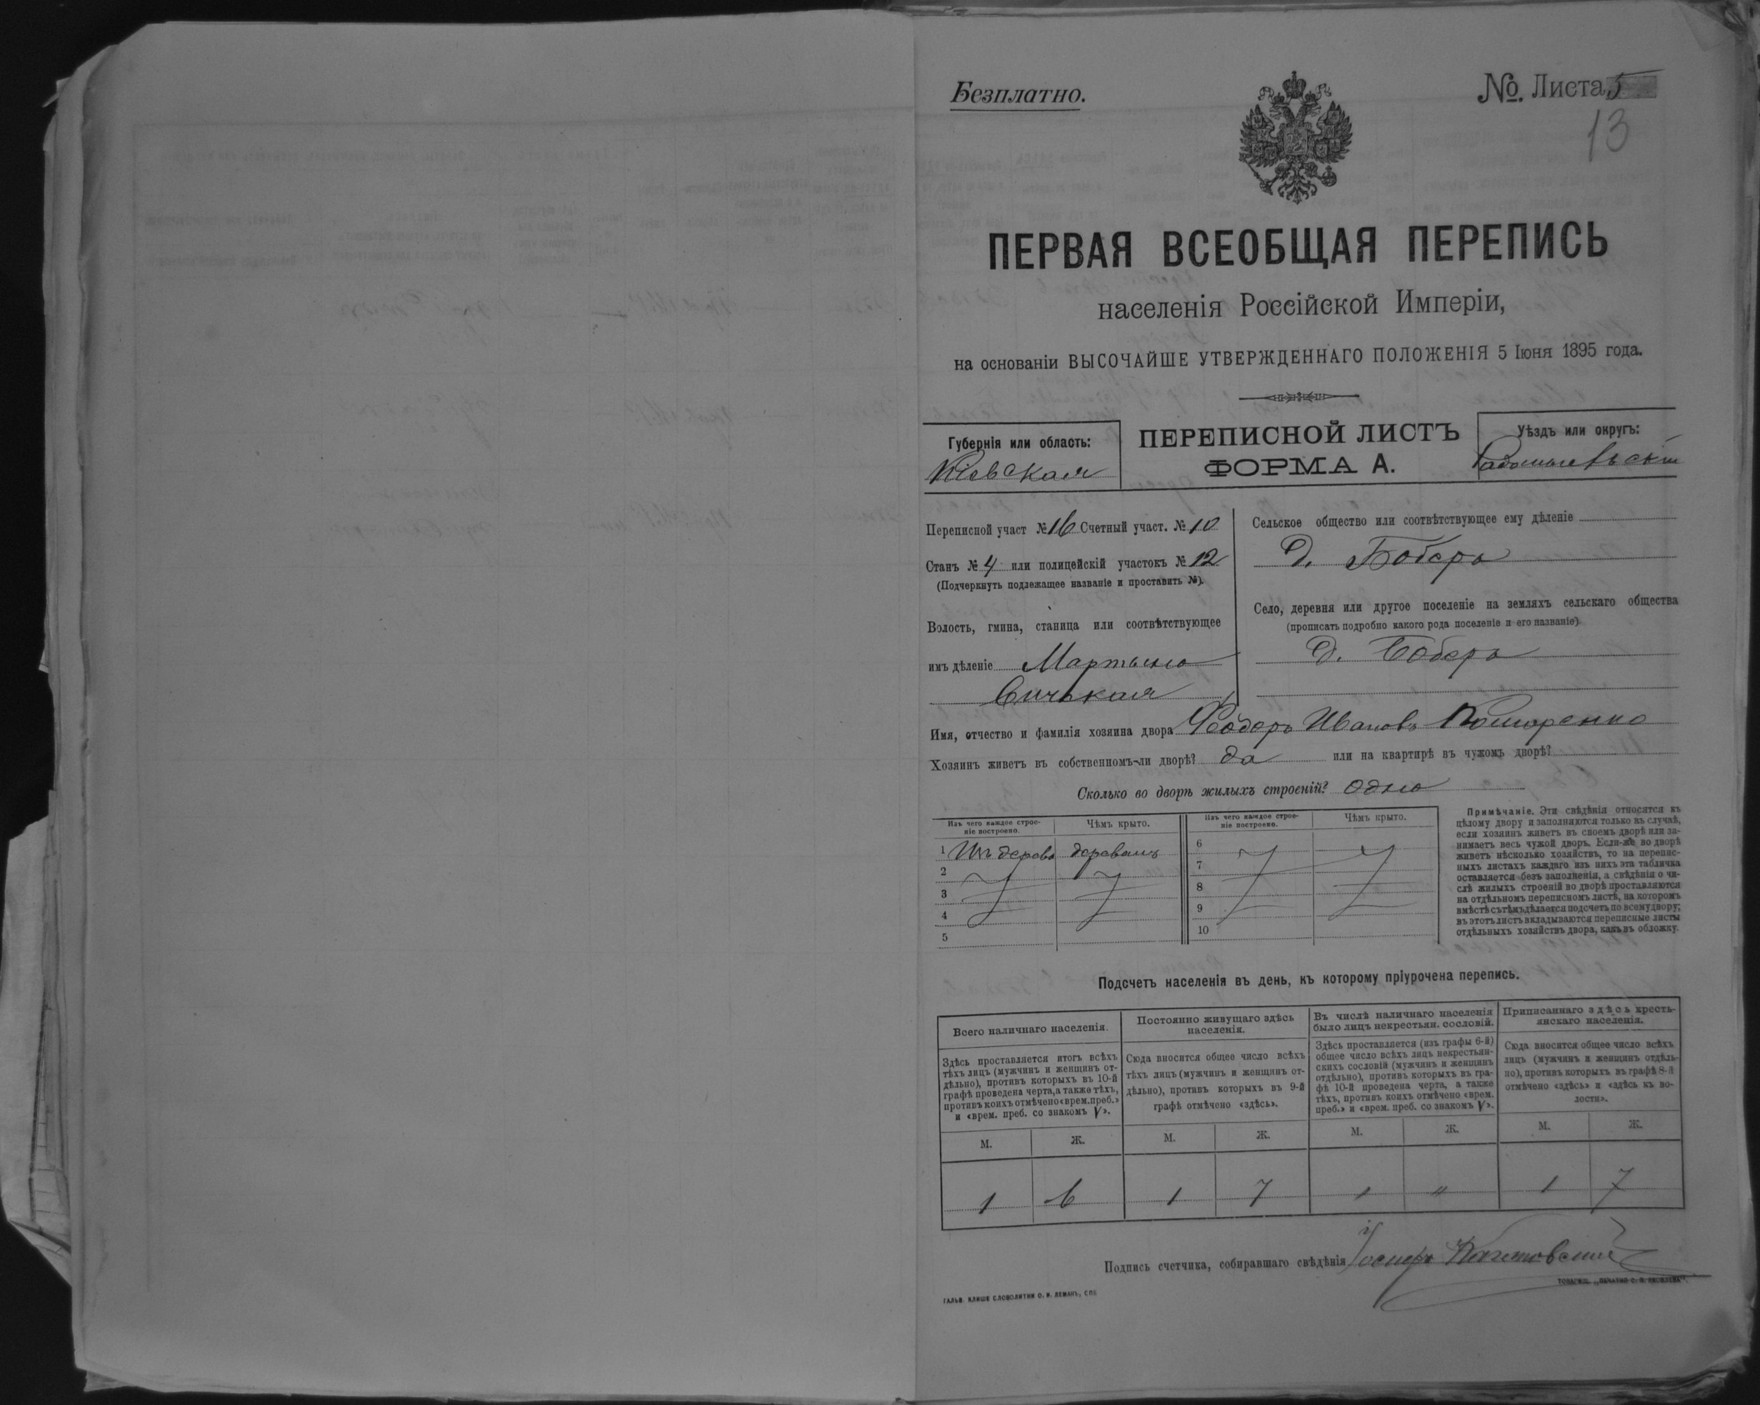 Безплатно.
№. Листа 5
13
ПЕРВАЯ ВСЕОБЩАЯ ПЕРЕПИСЬ
населенія Россійской Имперіи,
на основаніи ВЫСОЧАЙШЕ УТВЕРЖДЕННАГО ПОЛОЖЕНІЯ 5 Іюня 1895 года.
Губернія или область:
Кіевская
ПЕРЕПИСНОЙ ЛИСТЪ
ФОРМА А.
Уѣздъ или округъ:
Радомысльскій
Переписной участ № 16 Счетный участ. № 10
Станъ № 4 или полицейскій участокъ № 12
(Подчеркнуть подлежащее названіе и проставить №).
Волость, гмина, станица или соотвѣтствующее
имъ дѣленіе Мартыно
вичьская
Сельское общество или соотвѣтствующее ему дѣленіе
д. Боберъ
Село, деревня или другое поселеніе на земляхъ сельскаго общества
(прописать подробно какого рода поселеніе и его названіе)
д. Боберъ
Имя, отчество и фамилія хозяина двора Феодоръ Ивановъ Комаренко
Хозяинъ живетъ въ собственномъ-ли дворѣ? да или на квартирѣ въ чужомъ дворѣ?
Сколько во дворѣ жилыхъ строеній? одно
Изъ чего каждое строе-
ніе построено.
Чѣмъ крыто.
Изъ чего каждое строе-
ніе построено.
Чѣмъ крыто.
1 Изъ дерева деревомъ
2
3
4
5
6
7
8
9
10
Примѣчаніе. Эти свѣдѣнія относятся къ
цѣлому двору и заполняются только въ случаѣ,
если хозяинъ живетъ въ своемъ дворѣ или за-
нимаетъ весь чужой дворъ. Если-же во дворѣ
живетъ нѣсколько хозяйствъ, то на перепис-
ныхъ листахъ каждаго изъ нихъ эта табличка
оставляется безъ заполненія, а свѣдѣнія о чи-
слѣ жилыхъ строеній во дворѣ проставляются
на отдѣльномъ переписномъ листѣ, на которомъ
вмѣстѣ съ тѣмъ дѣлается подсчетъ по всему двору;
въ этотъ листъ вкладываются переписные листы
отдѣльныхъ хозяйствъ двора, какъ въ обложку.
Подсчетъ населенія въ день, къ которому пріурочена перепись.
Всего наличнаго населенія.
Здѣсь проставляется итогъ всѣхъ
тѣхъ лицъ (мужчинъ и женщинъ от-
дѣльно), противъ которыхъ въ 10-й
графѣ проведена черта, а также тѣхъ,
противъ коихъ отмѣчено «врем. преб.»
и «врем. преб. со знакомъ V».
Постоянно живущаго здѣсь
населенія.
Сюда вносится общее число всѣхъ
тѣхъ лицъ (мужчинъ и женщинъ от-
дѣльно), противъ которыхъ въ 9-й
графѣ отмѣчено «здѣсь».
Въ числѣ наличнаго населенія
было лицъ некрестьян. сословій.
Здѣсь проставляется (изъ графы 6-й)
общее число всѣхъ лицъ некрестьян-
скихъ сословій (мужчинъ и женщинъ
отдѣльно), противъ которыхъ въ гра-
фѣ 10-й проведена черта, а также
тѣхъ, противъ коихъ отмѣчено «врем.
преб.» и «врем. преб. со знакомъ V».
Приписаннаго здѣсь кресть-
янскаго населенія.
Сюда вносится общее число всѣхъ
лицъ (мужчинъ и женщинъ отдѣль-
но), противъ которыхъ въ графѣ 8-й
отмѣчено «здѣсь» и «здѣсь къ во-
лости».
М. Ж. М. Ж. М. Ж. М. Ж.
1 6 1 7 " " 1 7
Подпись счетчика, собиравшаго свѣдѣнія
ГАЛЬВ. КЛИШЕ СЛОВОЛИТНИ О. И. ЛЕМАНЪ, СПБ
ТОВАРИЩ. „ПЕЧАТНЯ С. П. ЯКОВЛЕВА".